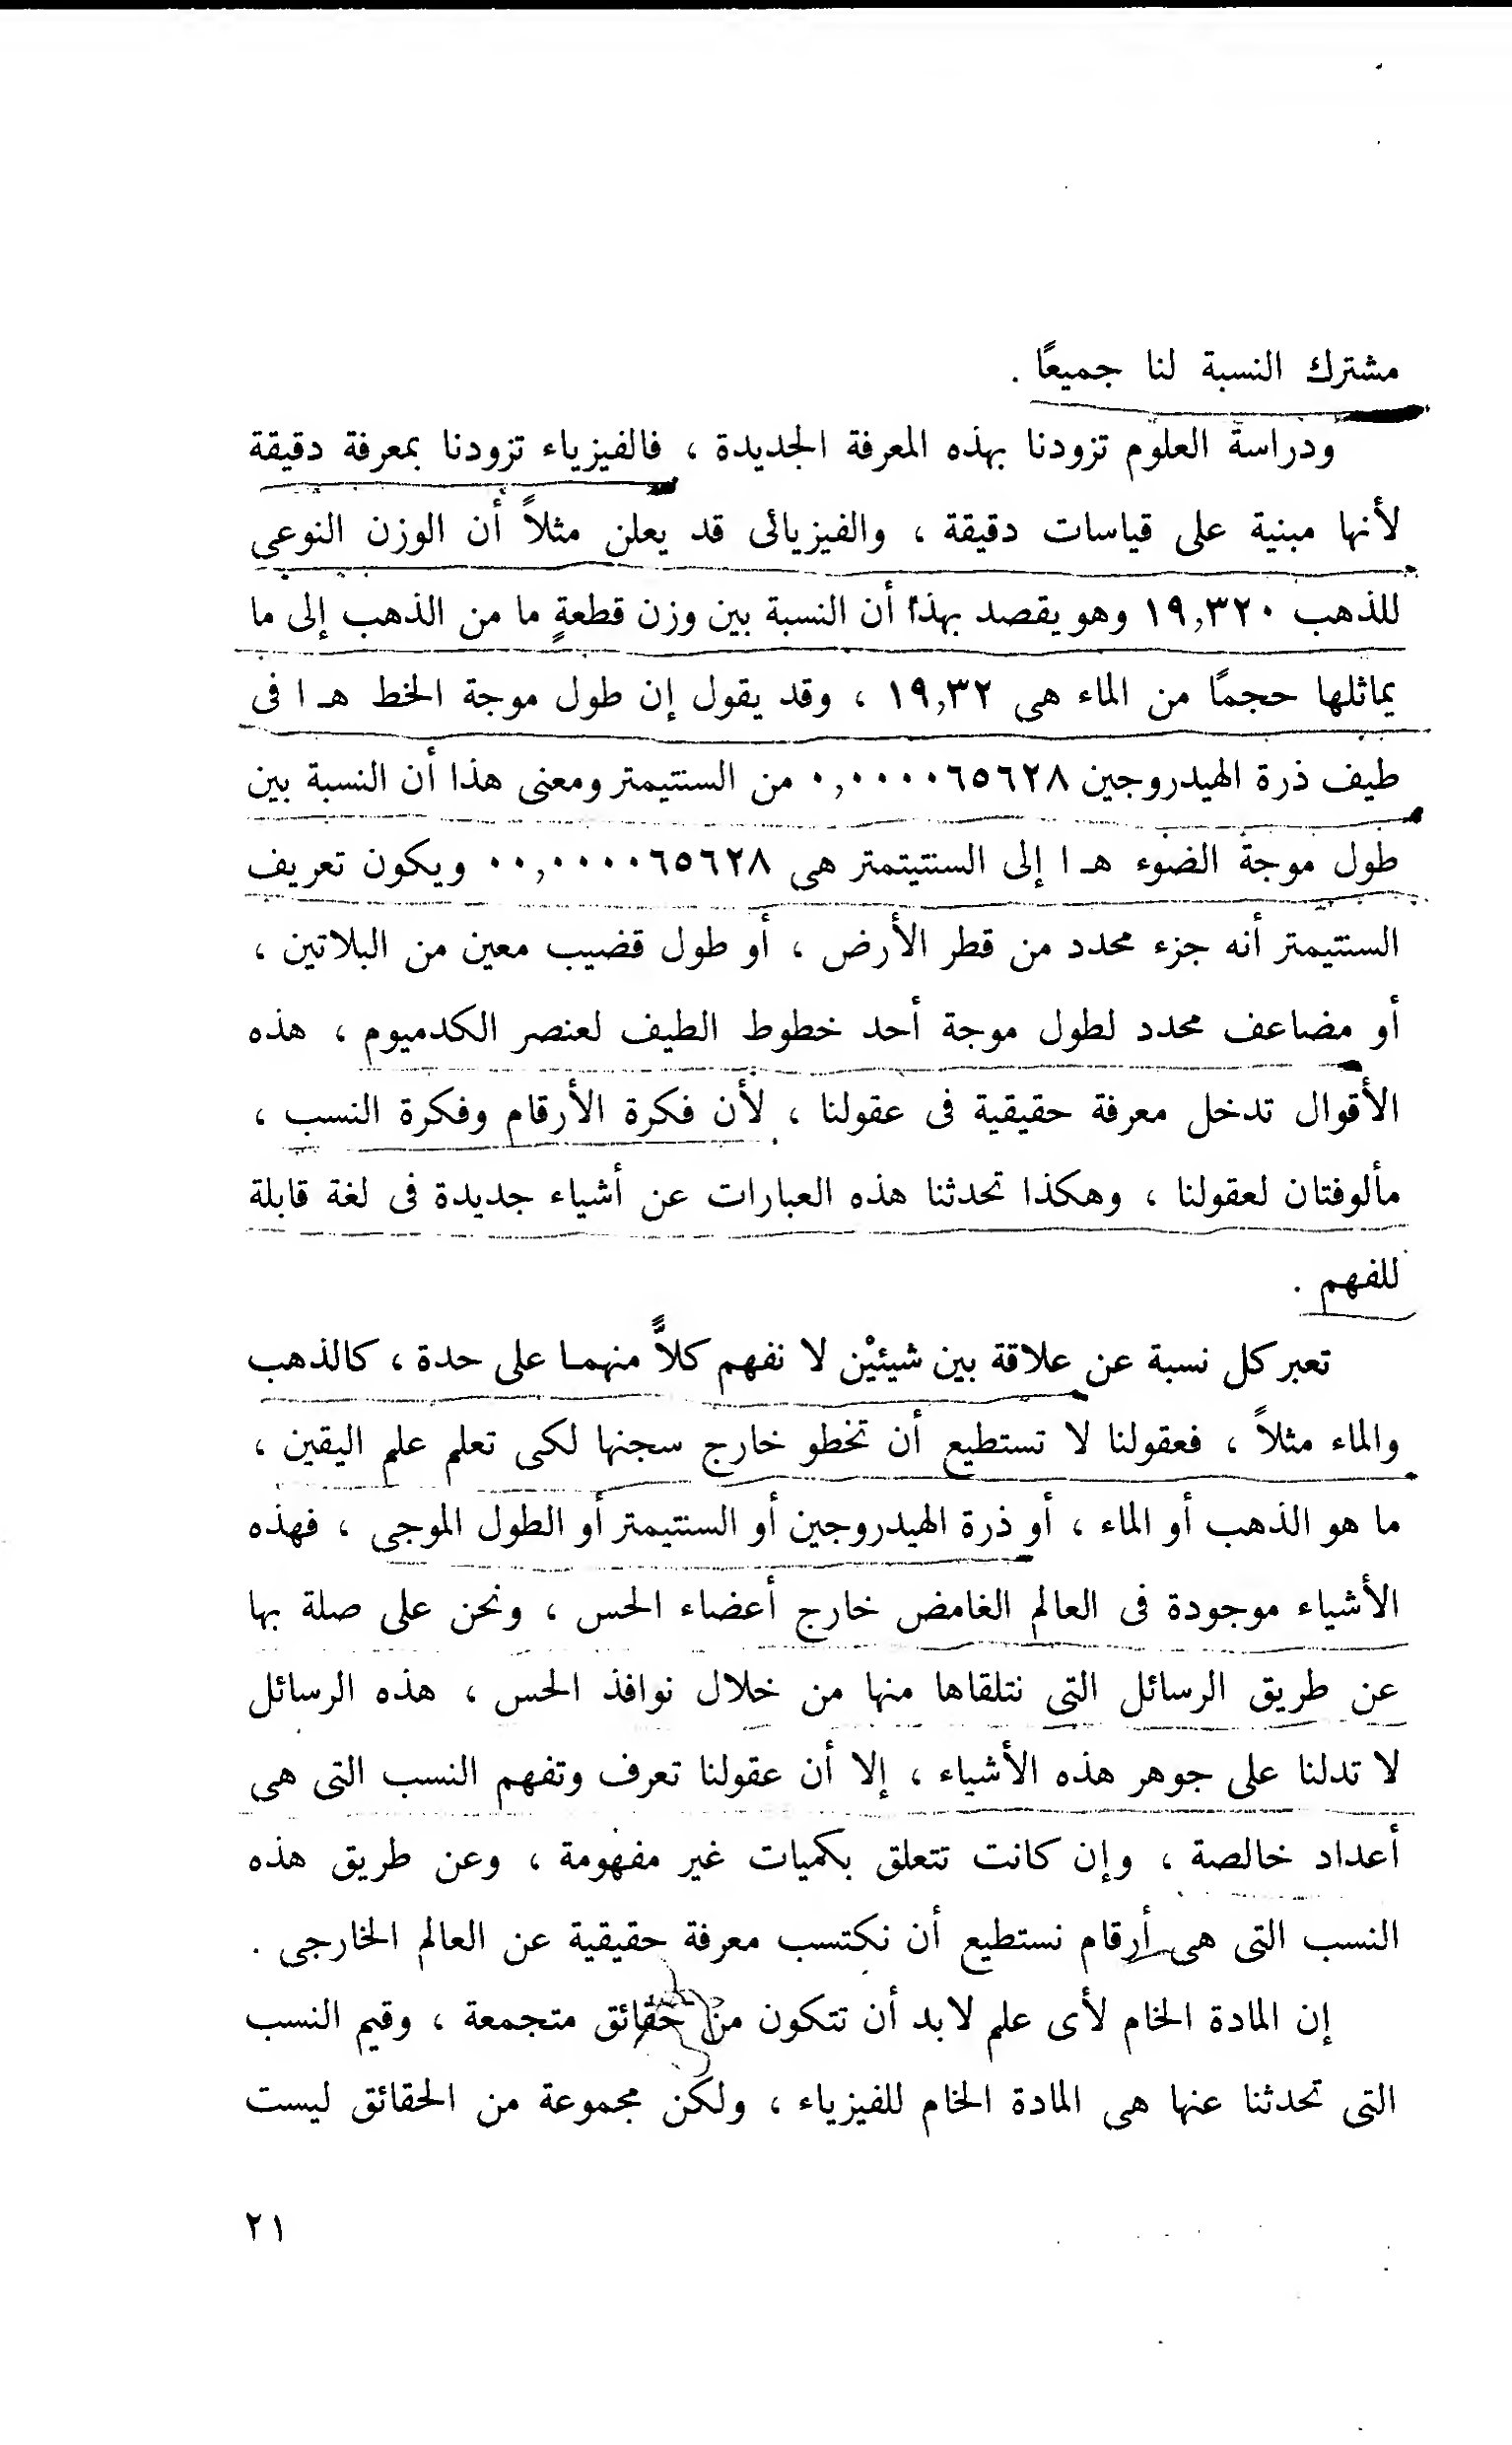 مشترك النسبة لنا جميعًا .
ودراسة العلوم تزودنا بهذه المعرفة الجديدة ، فالفيزياء تزودنا بمعرفة دقيقة
لأنها مبنية على قياسات دقيقة ، والفيزيائى قد يعلن مثلاً أن الوزن النوعى
للذهب ١٩,٣٢٠ وهو يقصد بهذا أن النسبة بين وزن قطعةٍ ما من الذهب إلى ما
يماثلها حجمًا من الماء هى ١٩,٣٢ ، وقد يقول إن طول موجة الخط هـ ا فى
طيف ذرة الهيدروجين ٠,٠٠٠٠٦٥٦٢٨ من السنتيمتر ومعنى هذا أن النسبة بين
طول موجة الضوء هـ ا إلى السنتيتمتر هى ٠٠,٠٠٠٠٦٥٦٢٨ ويكون تعريف
السنتيمتر أنه جزء محدد من قطر الأرض ، أو طول قضيب معين من البلاتين ،
أو مضاعف محدد لطول موجة أحد خطوط الطيف لعنصر الكدميوم ، هذه
الأقوال تدخل معرفة حقيقية فى عقولنا ، لأن فكرة الأرقام وفكرة النسب ،
مألوفتان لعقولنا ، وهكذا تحدثنا هذه العبارات عن أشياء جديدة فى لغة قابلة
للفهم .
تعبر كل نسبة عن علاقة بين شيئيْن لا نفهم كلاًّ منهما على حدة ، كالذهب
والماء مثلاً ، فعقولنا لا تستطيع أن تخطو خارج سجنها لكى تعلم علم اليقين ،
ما هو الذهب أو الماء ، أو ذرة الهيدروجين أو السنتيمتر أو الطول الموجى ، فهذه
الأشياء موجودة فى العالم الغامض خارج أعضاء الحس ، ونحن على صلة بها
عن طريق الرسائل التى نتلقاها منها من خلال نوافذ الحس ، هذه الرسائل
لا تدلنا على جوهر هذه الأشياء ، إلا أن عقولنا تعرف وتفهم النسب التى هى
أعداد خالصة ، وإن كانت تتعلق بكميات غير مفهومة ، وعن طريق هذه
النسب التى هى أرقام نستطيع أن نكتسب معرفة حقيقية عن العالم الخارجى .
إن المادة الخام لأى علم لابد أن تتكون من حقائق متجمعة ، وقيم النسب
التى تحدثنا عنها هى المادة الخام للفيزياء ، ولكن مجموعة من الحقائق ليست
٢١